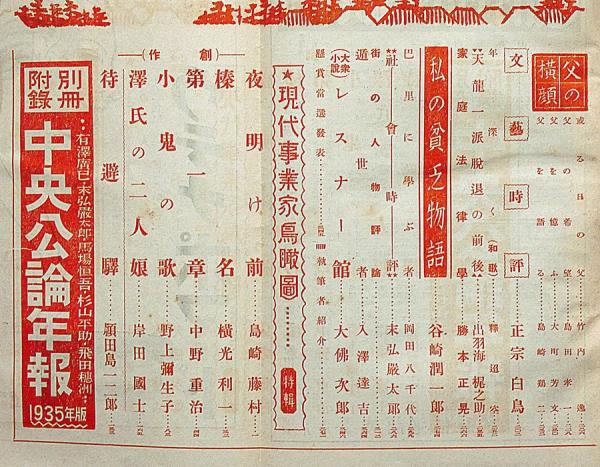 父の横顔
或る日の父……竹内逸
父の希望……島田米一
父を憶ふ……大町芳文
父を語る……島崎鶏二
文藝時評……正宗白鳥
年深く（和歌）……釋迢空
天龍一派脱退の前後……出羽海梶之助
家庭法律學……勝本正晃
私の貧乏物語……谷崎潤一郎
巴里に學ぶ者……岡田八千代
社會時評……末弘厳太郎
街の人物評論
遁人世……入澤達吉
（大衆小説）レスナー館……大佛次郎
懸賞當選發表……執筆者紹介
★現代事業家鳥瞰圖……特輯
（創作）
夜明け前……島崎藤村
榛名……横光利一
第一章……中野重治
小鬼の歌……野上彌生子
澤氏の二人娘……岸田國士
待避驛……願田島一二郎
別冊附錄
有澤廣巳・末弘嚴太郎・馬場恒吾・杉山平助・飛田穂洲
中央公論年報
1935年版